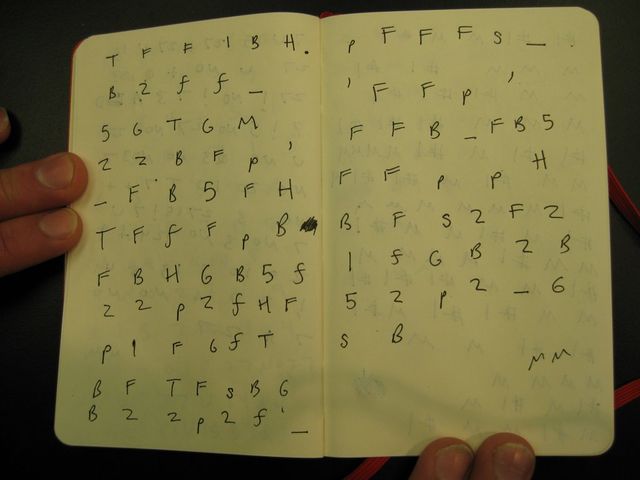 T F F 1 B H .
B 2 f f _
5 G T G M
2 2 B F p ,
_ F B 5 F H
T F f F p B
F B H G B 5 f
2 2 p 2 f H F
p 1 F 6 f T
B F T F s B G
B 2 2 p 2 f ' _
p F F F s _ .
' F F p '
F F B _ F B 5
F F p p H
B F s 2 F 2
1 f G B 2 B
5 2 p 2 _ 6
s B
MM